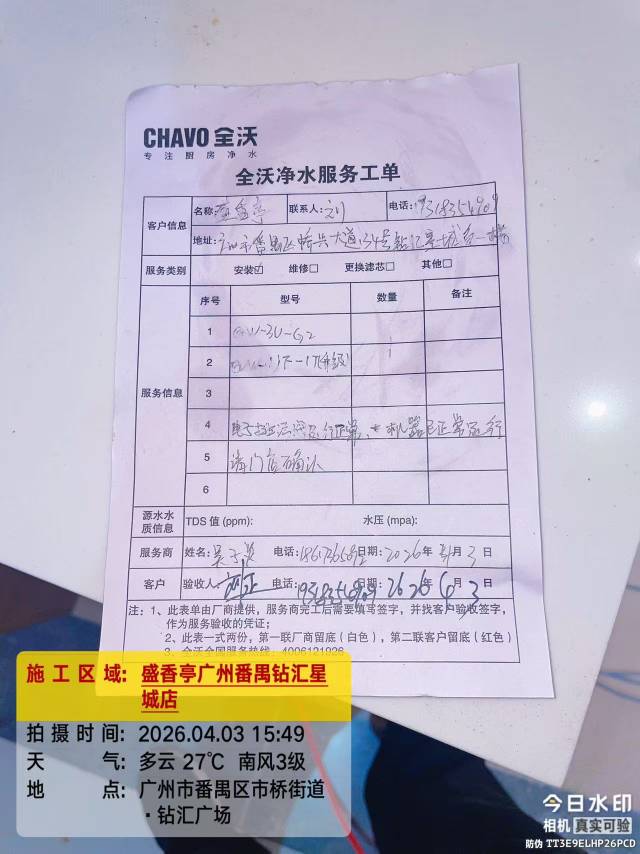 CHAVO 全沃
专注厨房净水
全沃净水服务工单
客户信息
名称: 盛香亭 联系人: 刘 电话: 19318354909
地址: 广州市番禺区桥兴大道134号钻汇星城负一楼
服务类别 安装☑ 维修☐ 更换滤芯☐ 其他☐
服务信息
序号 型号 数量 备注
1 -3U-G2
2 1
3
4 正常,
5 请门店确认
6
源水水质信息 TDS 值 (ppm): 水压 (mpa):
服务商 姓名: 电话: 日期: 2026年4月3日
客户 验收人: 电话: 19318354909 日期: 2026年4月3日
注: 1、此表单由厂商提供,服务商完工后需要填写签字,并找客户验收签字,
作为服务验收的凭证;
2、此表一式两份,第一联厂商留底(白色),第二联客户留底(红色)
3、全沃全国服务热线: 4006121826
施工区域: 盛香亭广州番禺钻汇星
城店
拍摄时间: 2026.04.03 15:49
天气: 多云 27℃ 南风3级
地点: 广州市番禺区市桥街道
·钻汇广场
今日水印
相机 真实可验
防伪 TT3E9ELHP26PCD